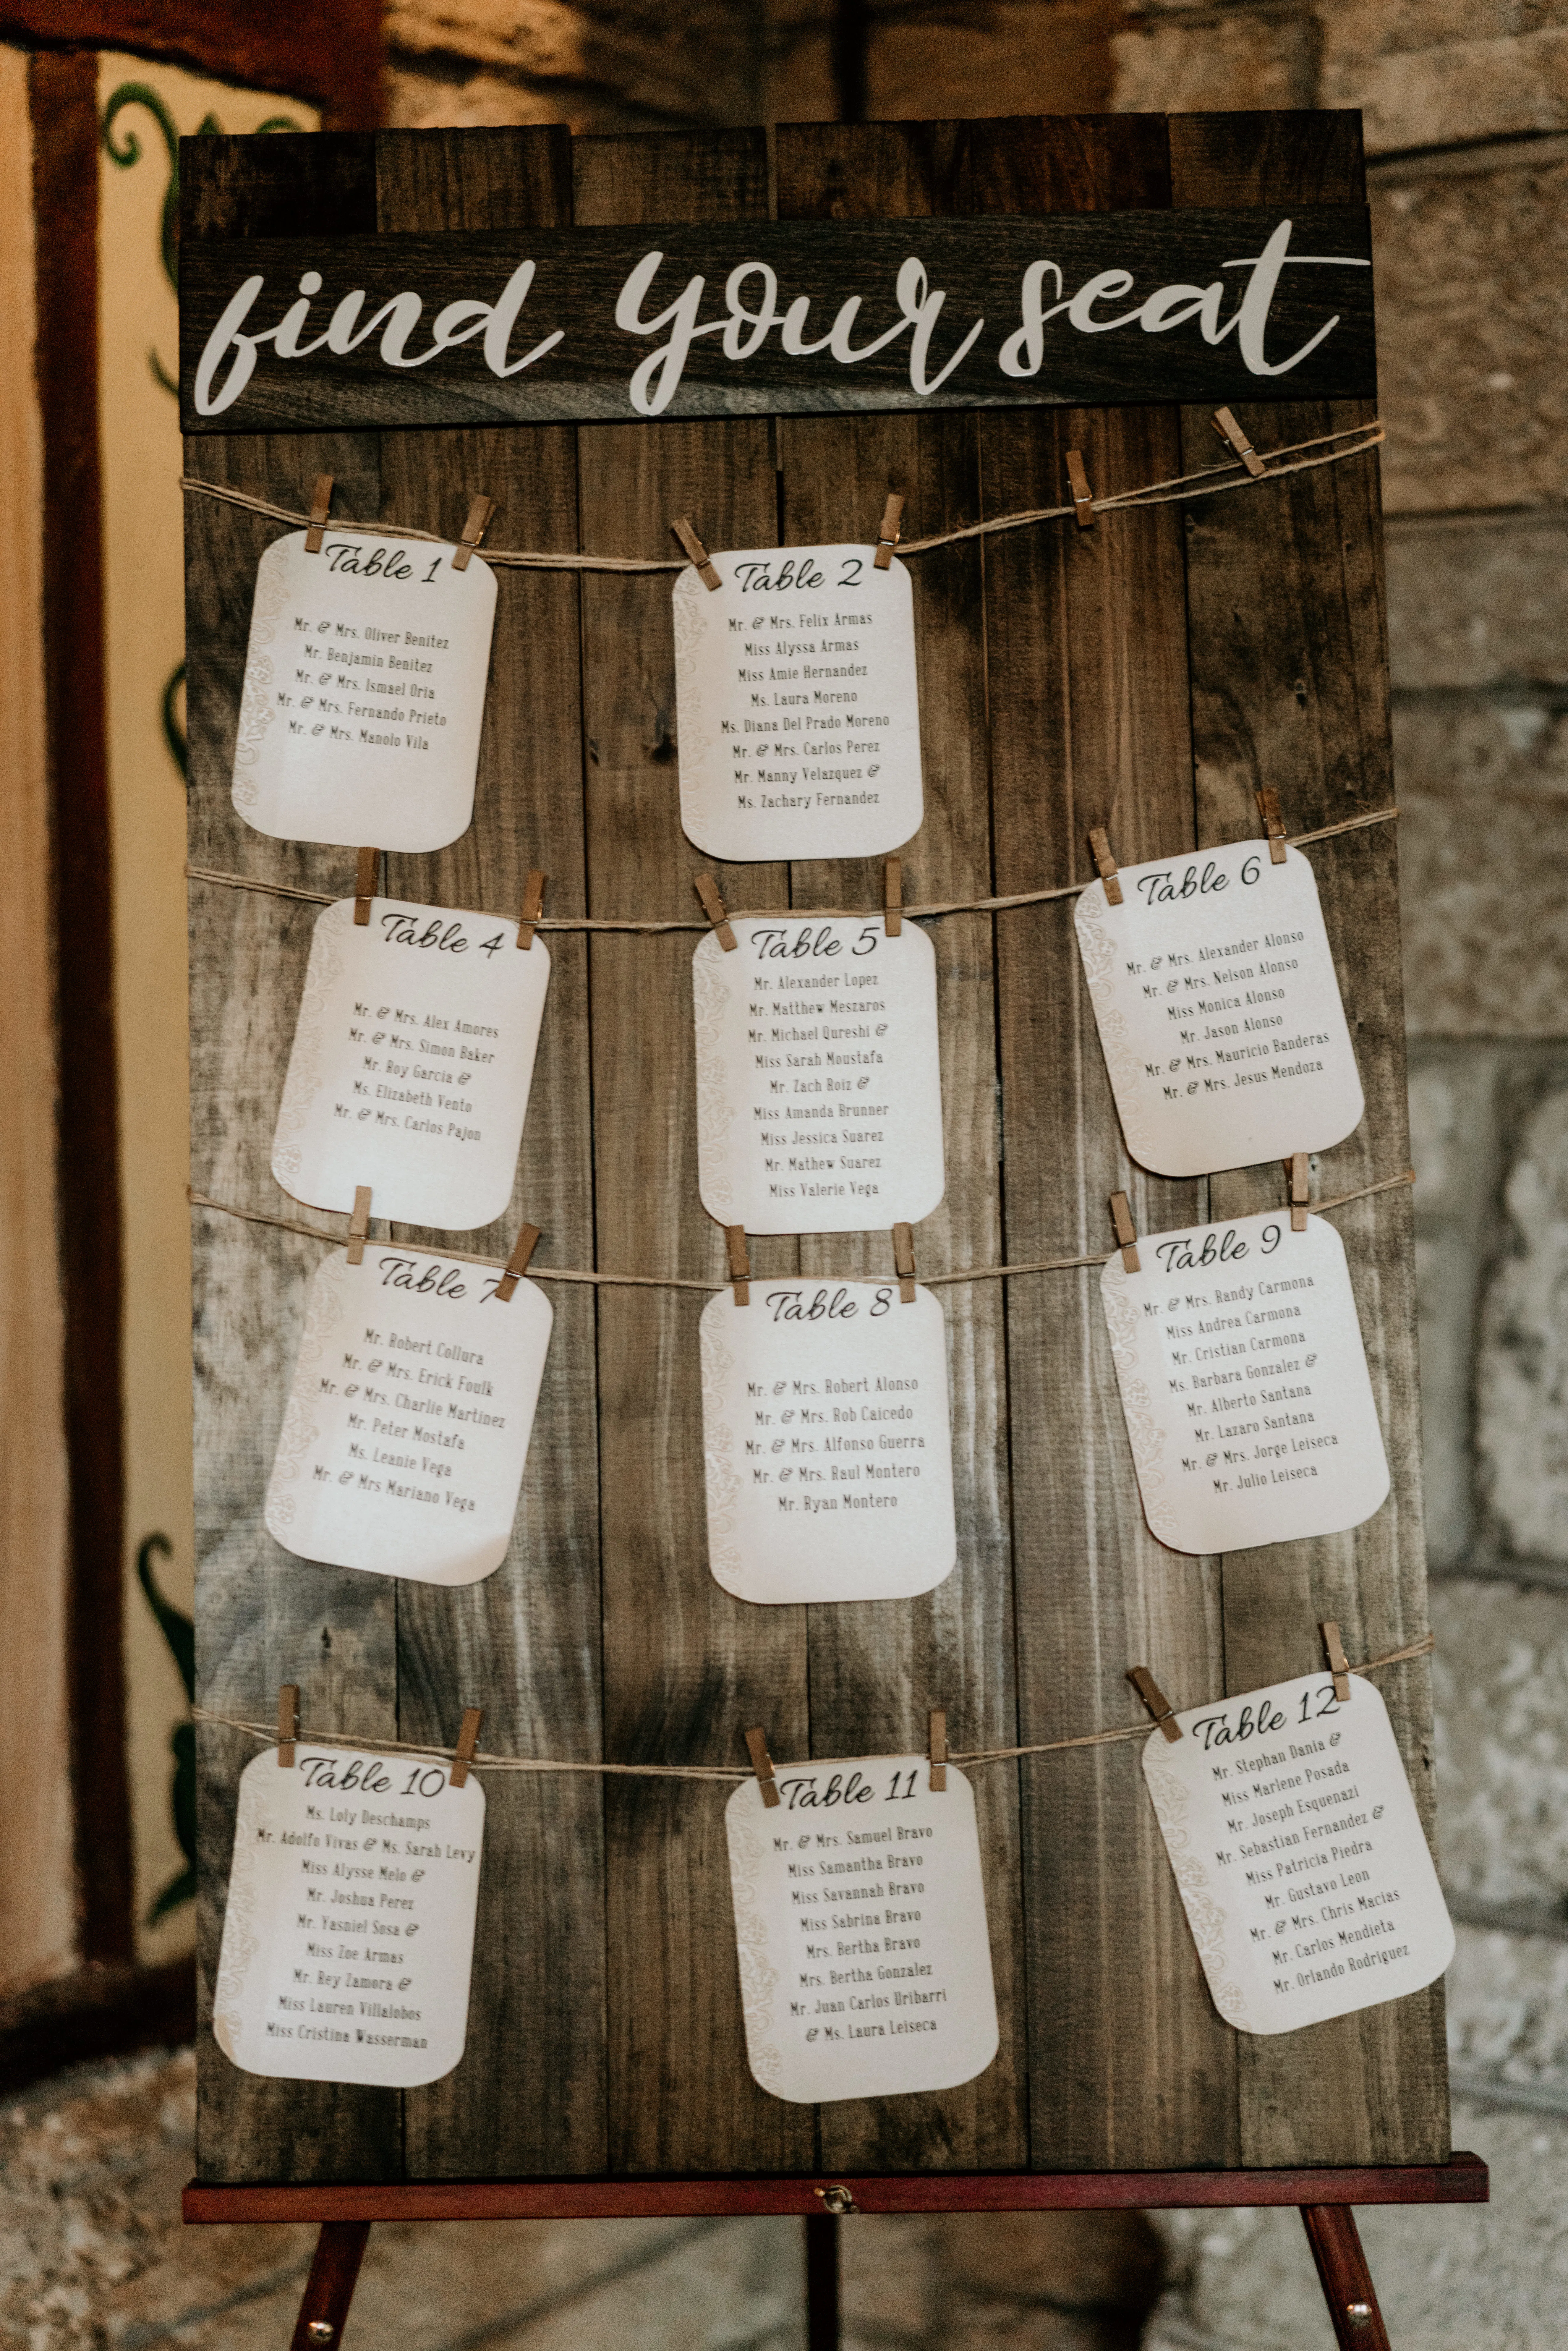 find your seat
Table 1
Mr. & Mrs. Oliver Benitez
Mr. Benjamin Benitez
Mr. & Mrs. Ismael Oria
Mr. & Mrs. Fernando Prieto
Mr. & Mrs. Manolo Vila
Table 2
Mr. & Mrs. Felix Armas
Miss Alyssa Armas
Miss Amie Hernandez
Ms. Laura Moreno
Ms. Diana Del Prado Moreno
Mr. & Mrs. Carlos Perez
Mr. Manny Velazquez &
Ms. Zachary Fernandez
Table 4
Mr. & Mrs. Alex Amores
Mr. & Mrs. Simon Baker
Mr. Roy Garcia &
Ms. Elizabeth Vento
Mr. & Mrs. Carlos Pajon
Table 5
Mr. Alexander Lopez
Mr. Matthew Meszaros
Mr. Michael Qureshi &
Miss Sarah Moustafa
Mr. Zach Roiz &
Miss Amanda Brunner
Miss Jessica Suarez
Mr. Mathew Suarez
Miss Valerie Vega
Table 6
Mr. & Mrs. Alexander Alonso
Mr. & Mrs. Nelson Alonso
Miss Monica Alonso
Mr. Jason Alonso
Mr. & Mrs. Mauricio Banderas
Mr. & Mrs. Jesus Mendoza
Table 7
Mr. Robert Collura
Mr. & Mrs. Erick Foulk
Mr. & Mrs. Charlie Martinez
Mr. Peter Mostafa
Ms. Leanie Vega
Mr. & Mrs Mariano Vega
Table 8
Mr. & Mrs. Robert Alonso
Mr. & Mrs. Rob Caicedo
Mr. & Mrs. Alfonso Guerra
Mr. & Mrs. Raul Montero
Mr. Ryan Montero
Table 9
Mr. & Mrs. Randy Carmona
Miss Andrea Carmona
Mr. Cristian Carmona
Ms. Barbara Gonzalez &
Mr. Alberto Santana
Mr. Lazaro Santana
Mr. & Mrs. Jorge Leiseca
Mr. Julio Leiseca
Table 10
Ms. Loly Deschamps
Mr. Adolfo Vivas & Ms. Sarah Levy
Miss Alysse Melo &
Mr. Joshua Perez
Mr. Yasniel Sosa &
Miss Zoe Armas
Mr. Rey Zamora &
Miss Lauren Villalobos
Miss Cristina Wasserman
Table 11
Mr. & Mrs. Samuel Bravo
Miss Samantha Bravo
Miss Savannah Bravo
Miss Sabrina Bravo
Mrs. Bertha Bravo
Mrs. Bertha Gonzalez
Mr. Juan Carlos Uribarri
& Ms. Laura Leiseca
Table 12
Mr. Stephan Dania &
Miss Marlene Posada
Mr. Joseph Esquenazi
Mr. Sebastian Fernandez &
Miss Patricia Piedra
Mr. Gustavo Leon
Mr. & Mrs. Chris Macias
Mr. Carlos Mendieta
Mr. Orlando Rodriguez